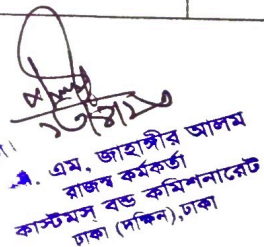 এম, জাহাঙ্গীর আলম
রাজস্ব কর্মকর্তা
কাস্টমস বন্ড কমিশনারেট
ঢাকা (দক্ষিন),ঢাকা